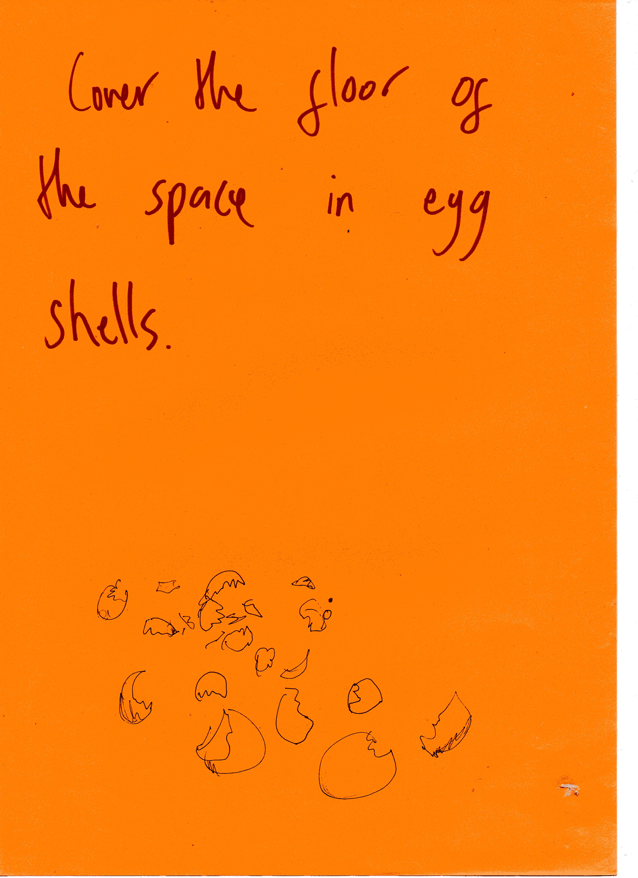 Cover the floor of
the space in egg
shells.